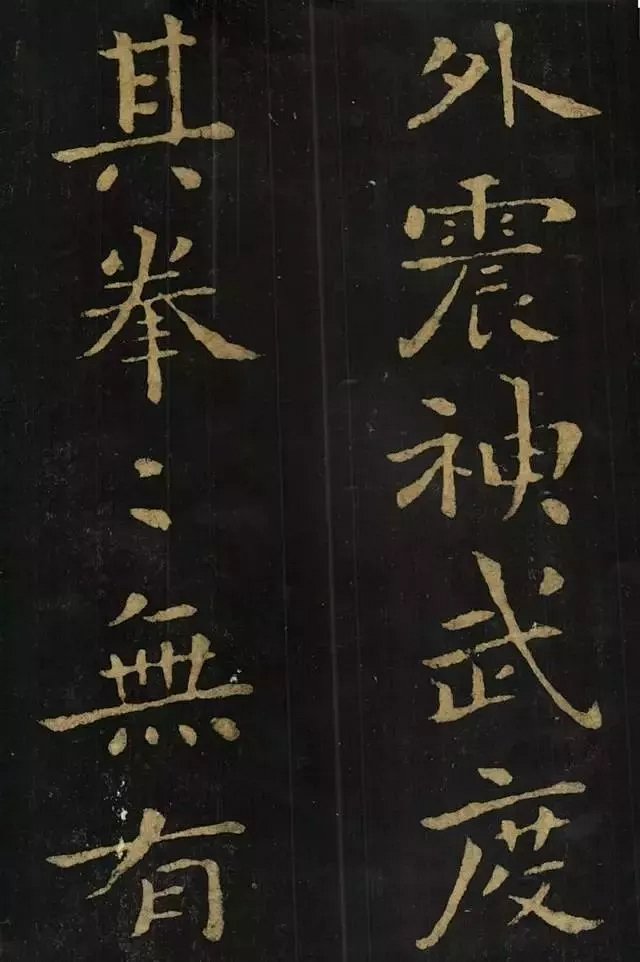 外震神武度
其拳〻無有